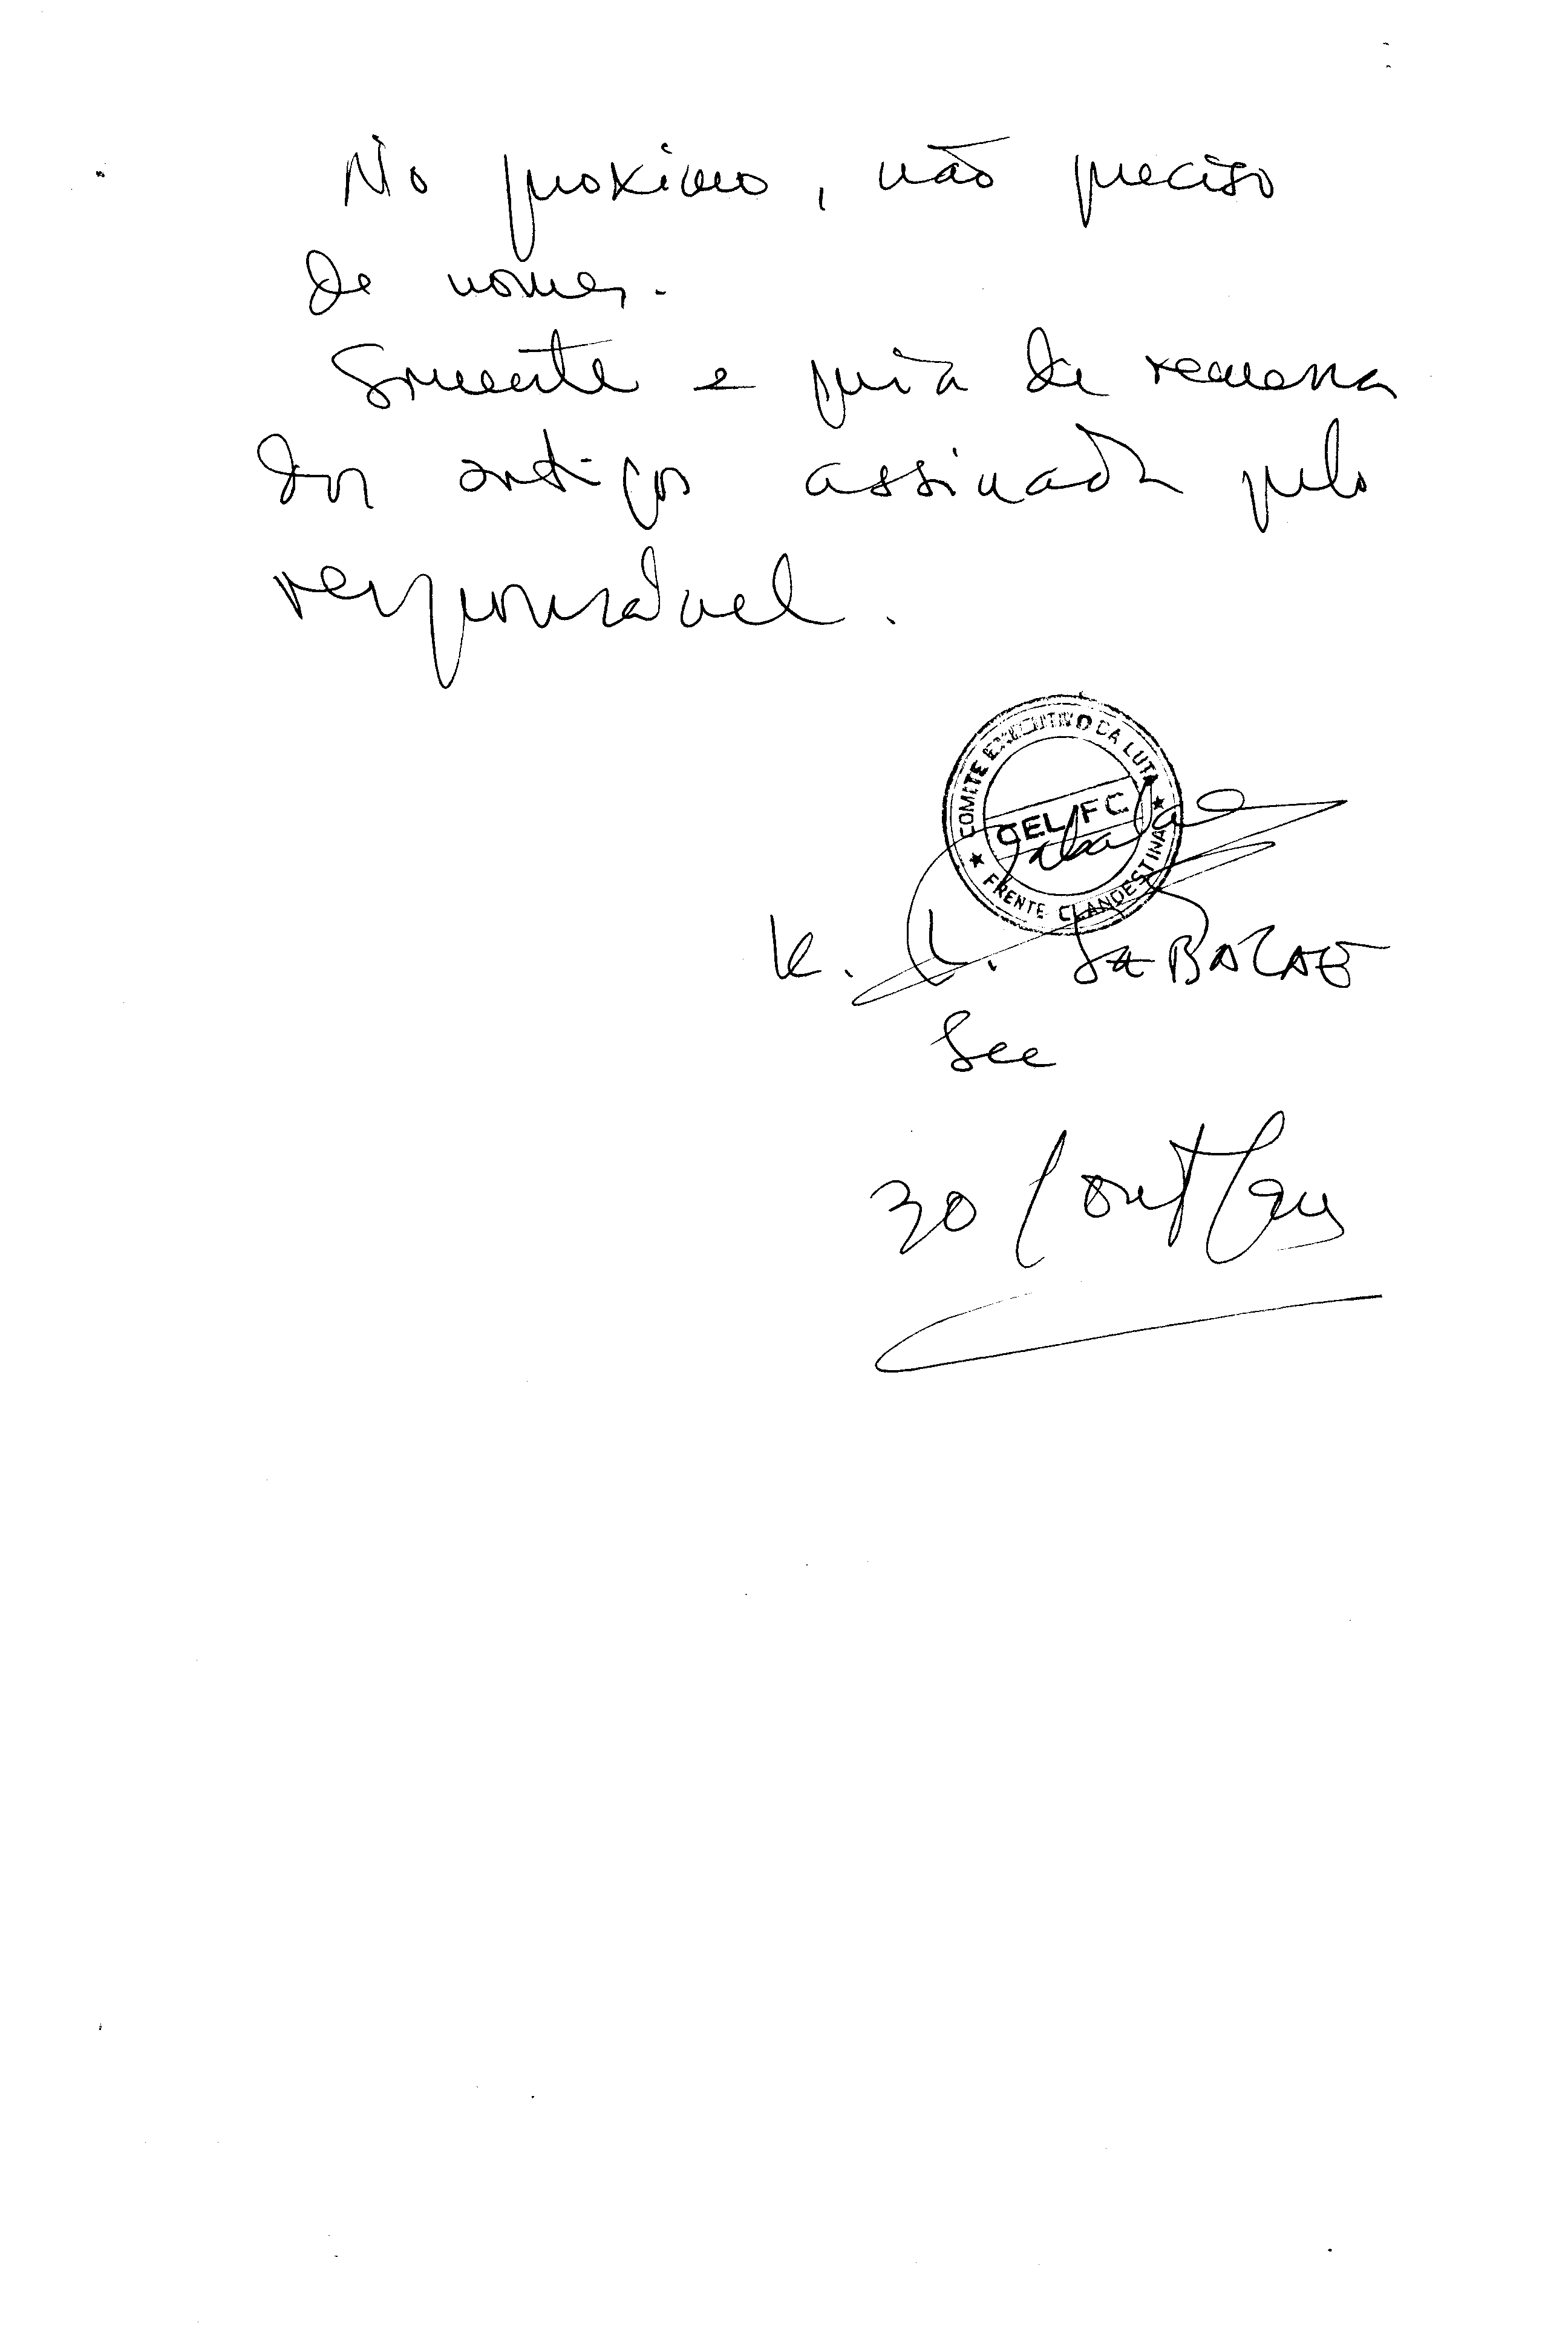 No proximo, não preciso
de nomes.
Somente e guia de remessa
dos artigos assinada pelo
responsável.
COMITE EXECUTIVO DA LUTA
CEL/FC
★ FRENTE CLANDESTINA ★
Sabalae
K. L. SABALAE
Sec
30/Out/